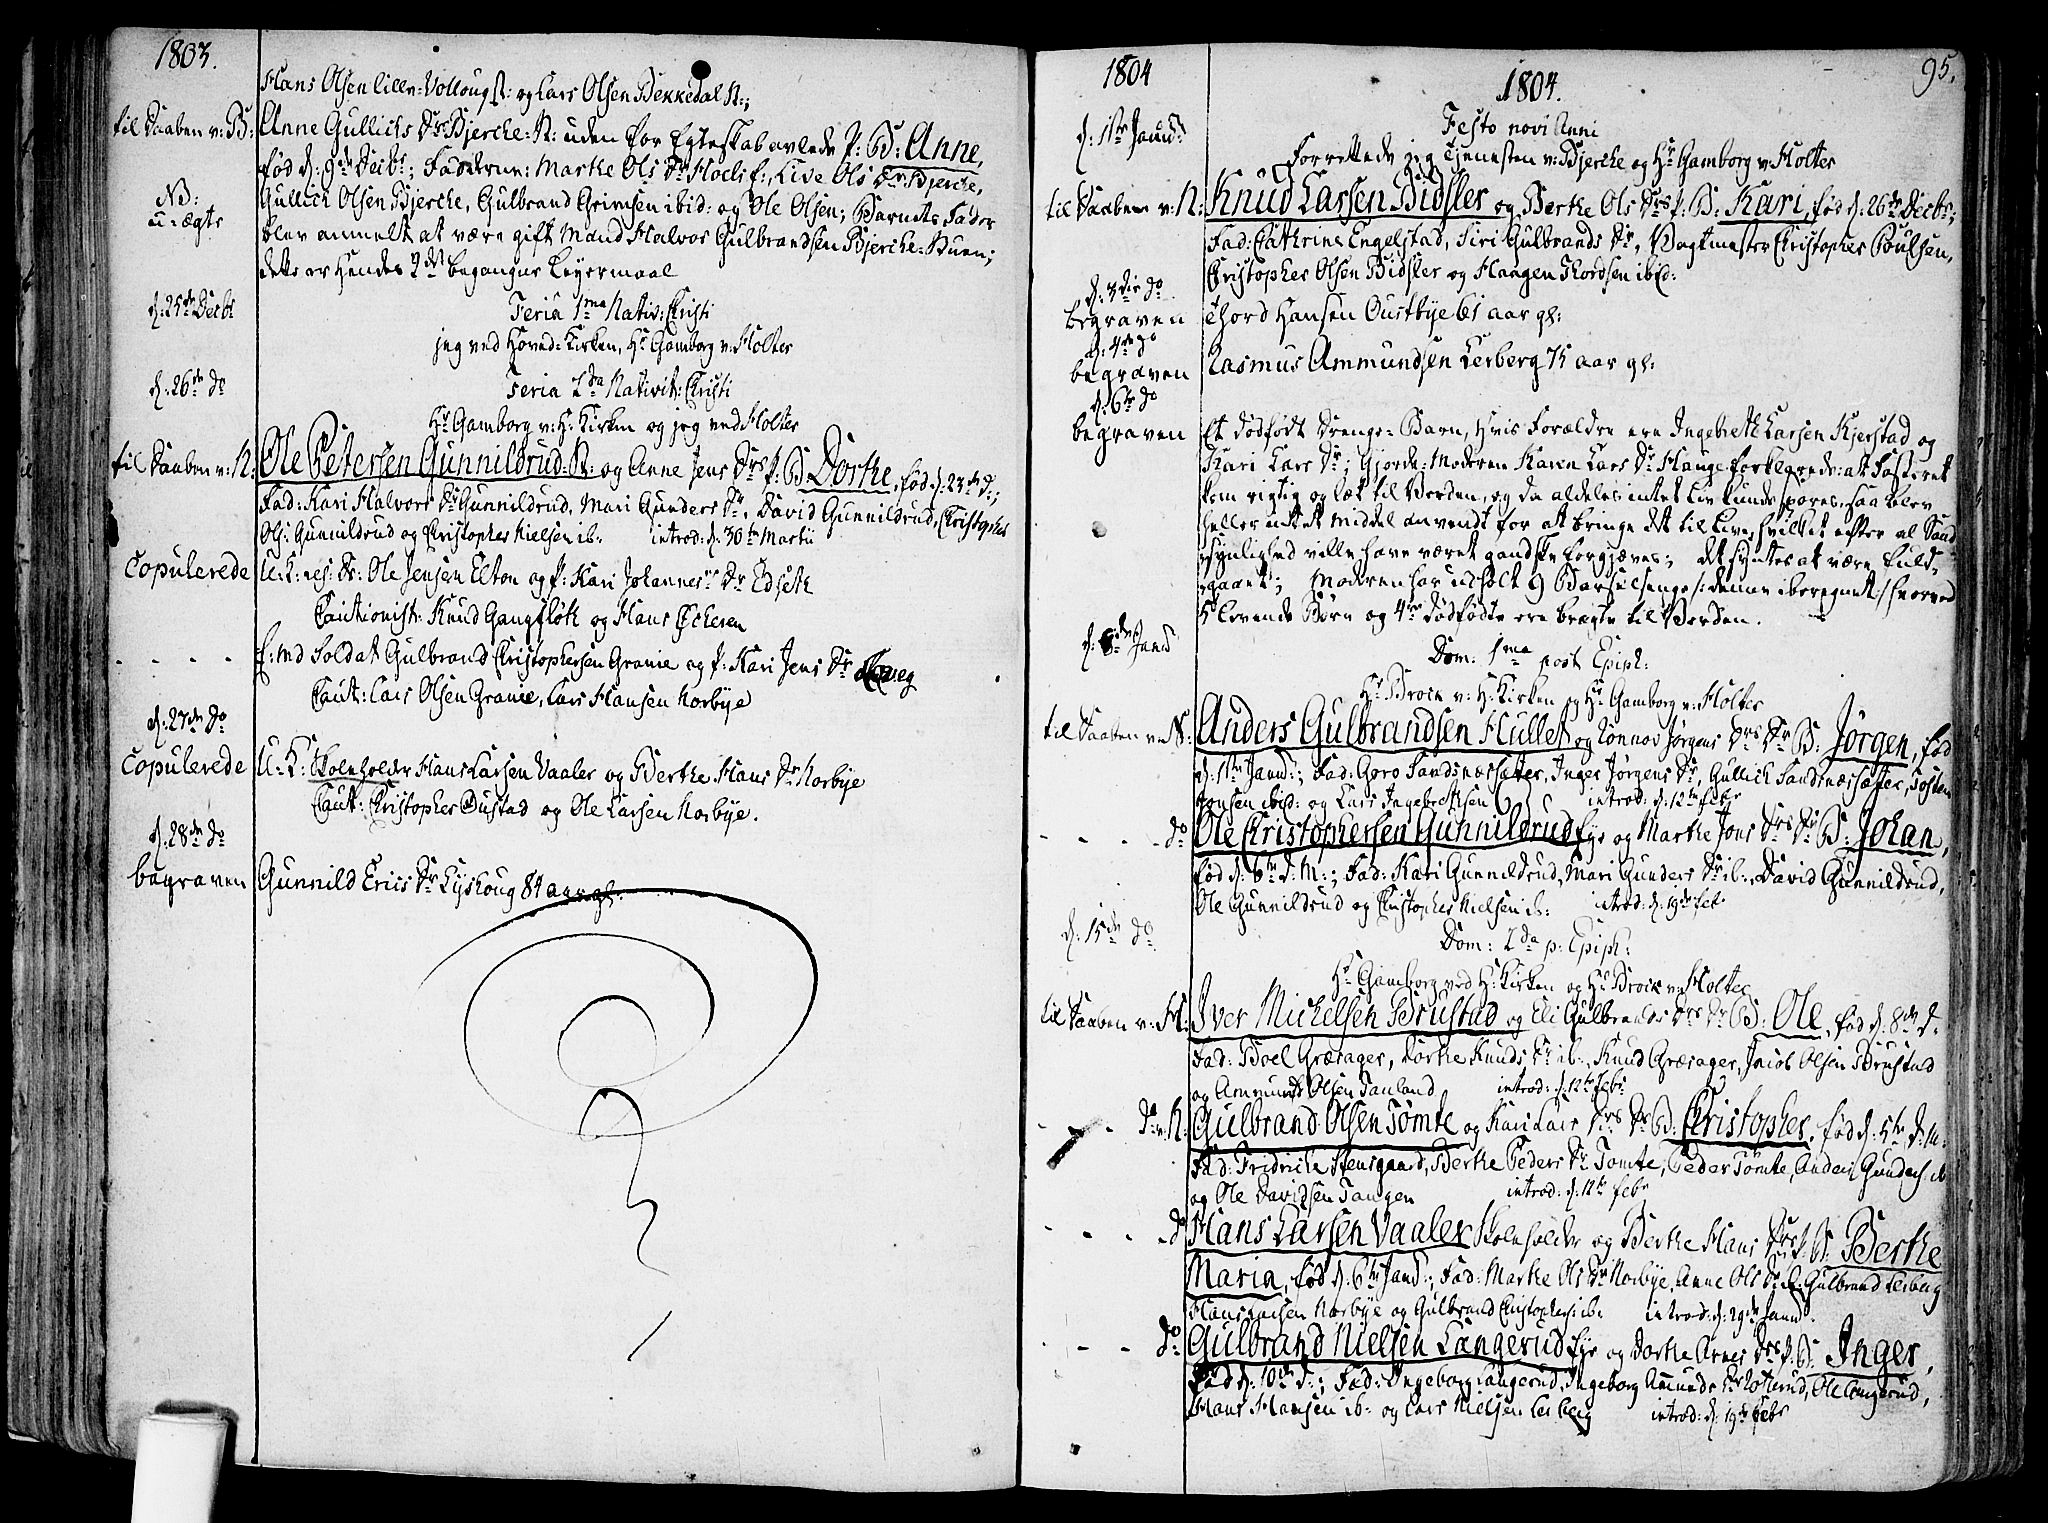 1803.
Hans Olsen lille Volloug S: og Lars Olsen Bekkedal N:;
til Daaben v: B: Anne Gullichs Dr Bjerche: N: uden for Egteskab avlede p: B: Anne,
fød d: 9de Decbr; Faddrene: Marthe Ols Dr Hoels f:, Live Ols Dr Bjerche,
NB: u: ægte
Gullich Olsen Bjerche, Gulbrand Grimsen ibid: og Ole Olsen; Barnets Fader
blev anmelt at være gift Mand Halvor Gulbrandsen Bjerche: Huen;
dette er hendes 2det begangne Leyermaal
d: 25de Decbr Feria 1ma Nativ: Christi
jeg ved Hoved: Kirken, Hr Gamborg v: Holter
d: 26de do Feria 2da Nativit: Christi
Hr Gamborg v: H: Kirken og jeg ved Holter
til Daaben v: N: Ole Petersen Gunnildrud: N: og Anne Jens Drs p: B: Dorthe, fød d: 23de d:;
Fad: Kari Halvors Dr Gunnildrud, Mari Gunders Dr, David Gunnildrud, Christopher
Ols: Gunnildrud og Christopher Nielsen ib: introd: d: 30te Martii
Copulerede U: K: res: Dr: Ole Jensen Elton og p: Kari Johannes Dr Edseth
Cautionist: Knud Gangfløth og Hans Echeren
- - - - f: md Soldat Gulbrand Christophersen Granie og p: Kari Jens Dr
Caut: Lars Olsen Granie, Lars Hansen Norbye
d: 27de do
Copulerede U: K: Skoleholder Hans Larsen Vaaler og Berthe Hans Dr Norbye
Caut: Christopher Dustad og Ole Larsen Norbye.
d: 28de do
begraven Gunnild Erics Dr Lyshoug 84 aar gl:
1804
95.
1804.
d: 1ste Janu: Festo novi Anni
Forrettede jeg Tjenesten v: Bjerche og Hr Gamborg v: Holter
til Daaben v: N: Knud Larsen Bidsler og Berthe Ols Drs p: B: Kari, fød d: 26de Decbr;
Fad: Cathrine Engelstad, Siri Gulbrands Dr, Vagtmester Christopher Poulsen,
Christopher Olsen Bidsler og Haagen Thordsen ibid:
d: 3die do
begraven Thord Hansen Oustbye 61 aar gl:
d: 4de do
begraven Rasmus Ammundsen Lerberg 75 aar gl:
d: 6te do
begraven Et dødfødt Drenge-Barn, hvis Forældre ere Ingebreth Larsen Kjerstad og
Kari Lars Dr; Gjorde-Moderen Karen Lars Dr Hauge forklarede: at Fosteret
kom rigtig og læt til Verden, og da aldeles intet Liv kunde spores, saa blev
heller intet middel anvendt for at bringe det til Live, hvilket efter al Sand-
synlighed ville have været gandske forgjæves; det syntes at være fuld-
gaaet; Moderen har udholt 9 Barselsenge /: denne iberegnet :/ hvorved
5 levende Børn og 4re dødfødte ere bragte til Verden.
d: 8de Janu Dom: 1ma post Epiph:
Hr Brock v: H: Kirken og Hr Gamborg v: Holter
til Daaben v: N: Anders Gulbrandsen Hullet og Rønnov Jørgens Drs Dr B: Jørgen, fød
d: 1ste Janu:; Fad: Goro Sandsnæssæter, Inger Jørgens Dr, Gullich Sandsnæssæter, Tosten
Jonsen ibid: og Lars Ingebrethsen introd: d: 12te febr
- - - do Ole Christophersen Gunnildrud Eye og Marthe Jons Drs Dr B: Johan,
fød d: 6te d: M:; Fad: Kari Gunnildrud, Mari Gunders Dr ib:, David Gunnildrud,
Ole Gunnildrud og Christopher Nielsen ib: introd: d: 19de febr
d: 15de do Dom: 2da p: Epiph:
Hr Gamborg ved H: Kirken og Hr Brock v: Holter
til Daaben v: H: Iver Michelsen Brustad og Eli Gulbrands Drs Dr B: Ole, fød d: 8de d:
Fad: Boel Græsager, Dorthe Knuds Dr ib:, Knud Græsager, Jacob Olsen Brustad
og Ammund Olsen Tanland introd: d: 12te febr
- - - do v: N: Gulbrand Olsen Tømte og Kari Lars Drs Dr B: Christopher, fød d: 5te d: M:
Fad: Fridriche Stensgaard, Berthe Peders Dr Tomte, Peder Tømte, Anders Gunders: ib
og Ole Davidsen Tangen introd: d: 12te febr
- - - do Hans Larsen Vaaler Skoleholder og Berthe Hans Drs p: B: Berthe
Maria, fød d: 6te Janu:; Fad: Marthe Ols Dr Norbye, Anne Ols Dr Gulbrand Lerberg
Hans Larsen Norbye og Gulbrand Christophers: ib: introd: d: 29de Janu:
- - - do Gulbrand Nielsen Langerud Eye og Dorthe Arnes Drs p: B: Inger,
fød d: 10de d:; Fad: Ingeborg Langerud, Ingeborg Amunds Dr Roterud, Ole Langerud,
Hans Hansen ib: og Lars Nielsen Lerberg introd: d: 19de febr